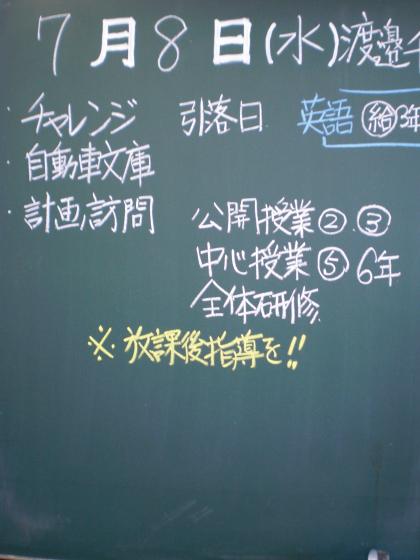 7月8日(水)渡邉
・チャレンジ 引落日 英語 給 3年
・自動車文庫
・計画訪問 公開授業② ③
中心授業⑤ 6年
全体研修
※放課後指導を!!